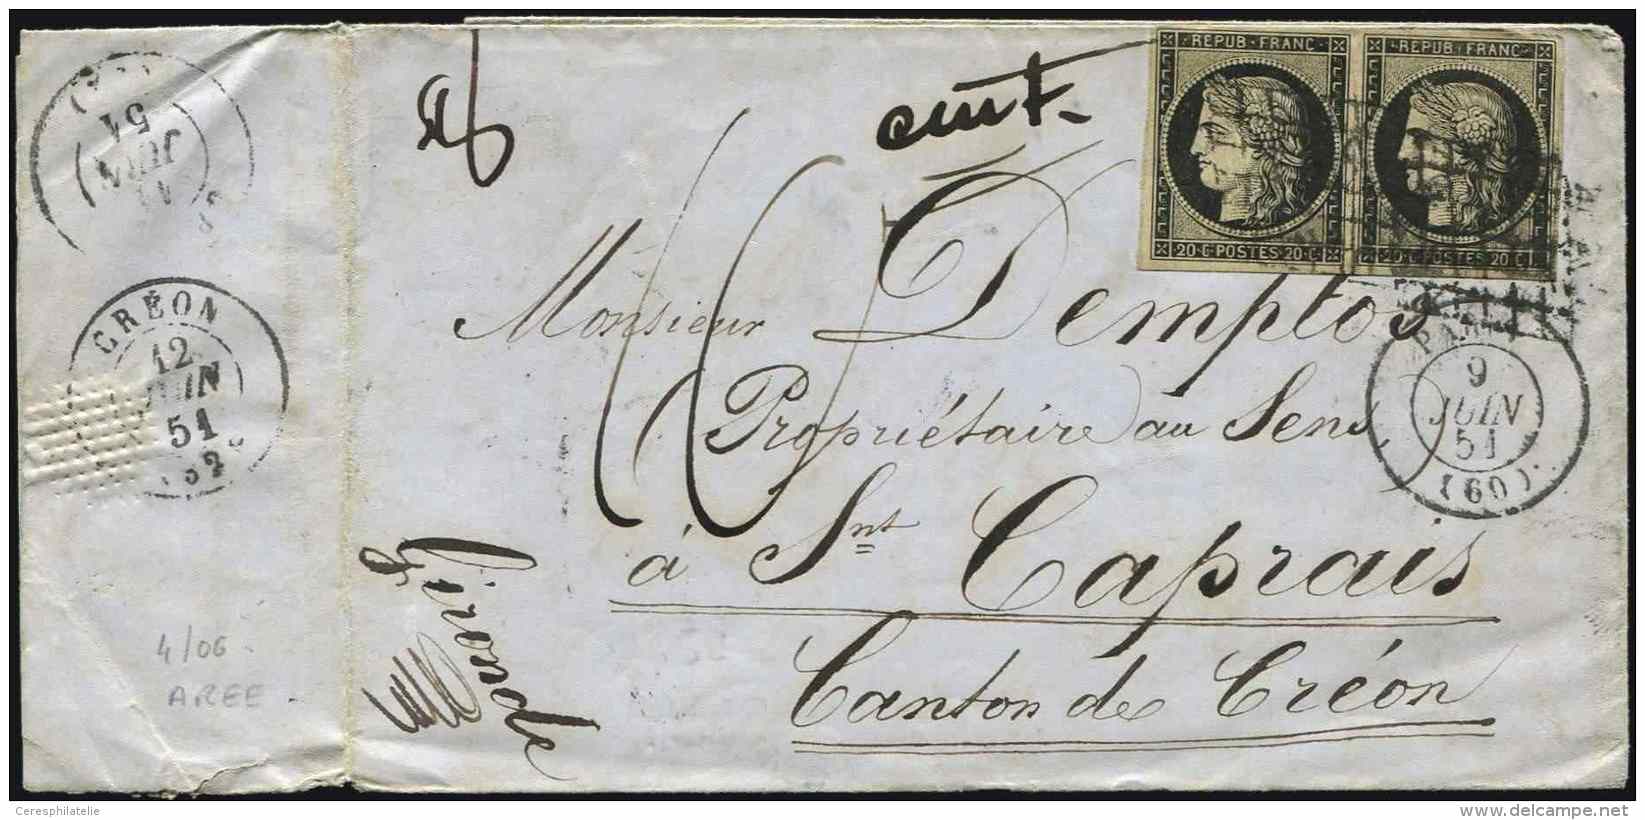 cent.
REPUB·FRANC·
20·C·POSTES·20·C
REPUB·FRANC·
20·C·POSTES·20·C
Monsieur Demptos
Propriétaire au Sens
à Snt Caprais
Canton de Créon
Gironde
9
JUIN
51
(60)
51
JUIN
CRÉON
12
JUIN
51
4/06
AREE
Ceresphilatelie
www.delcampe.net